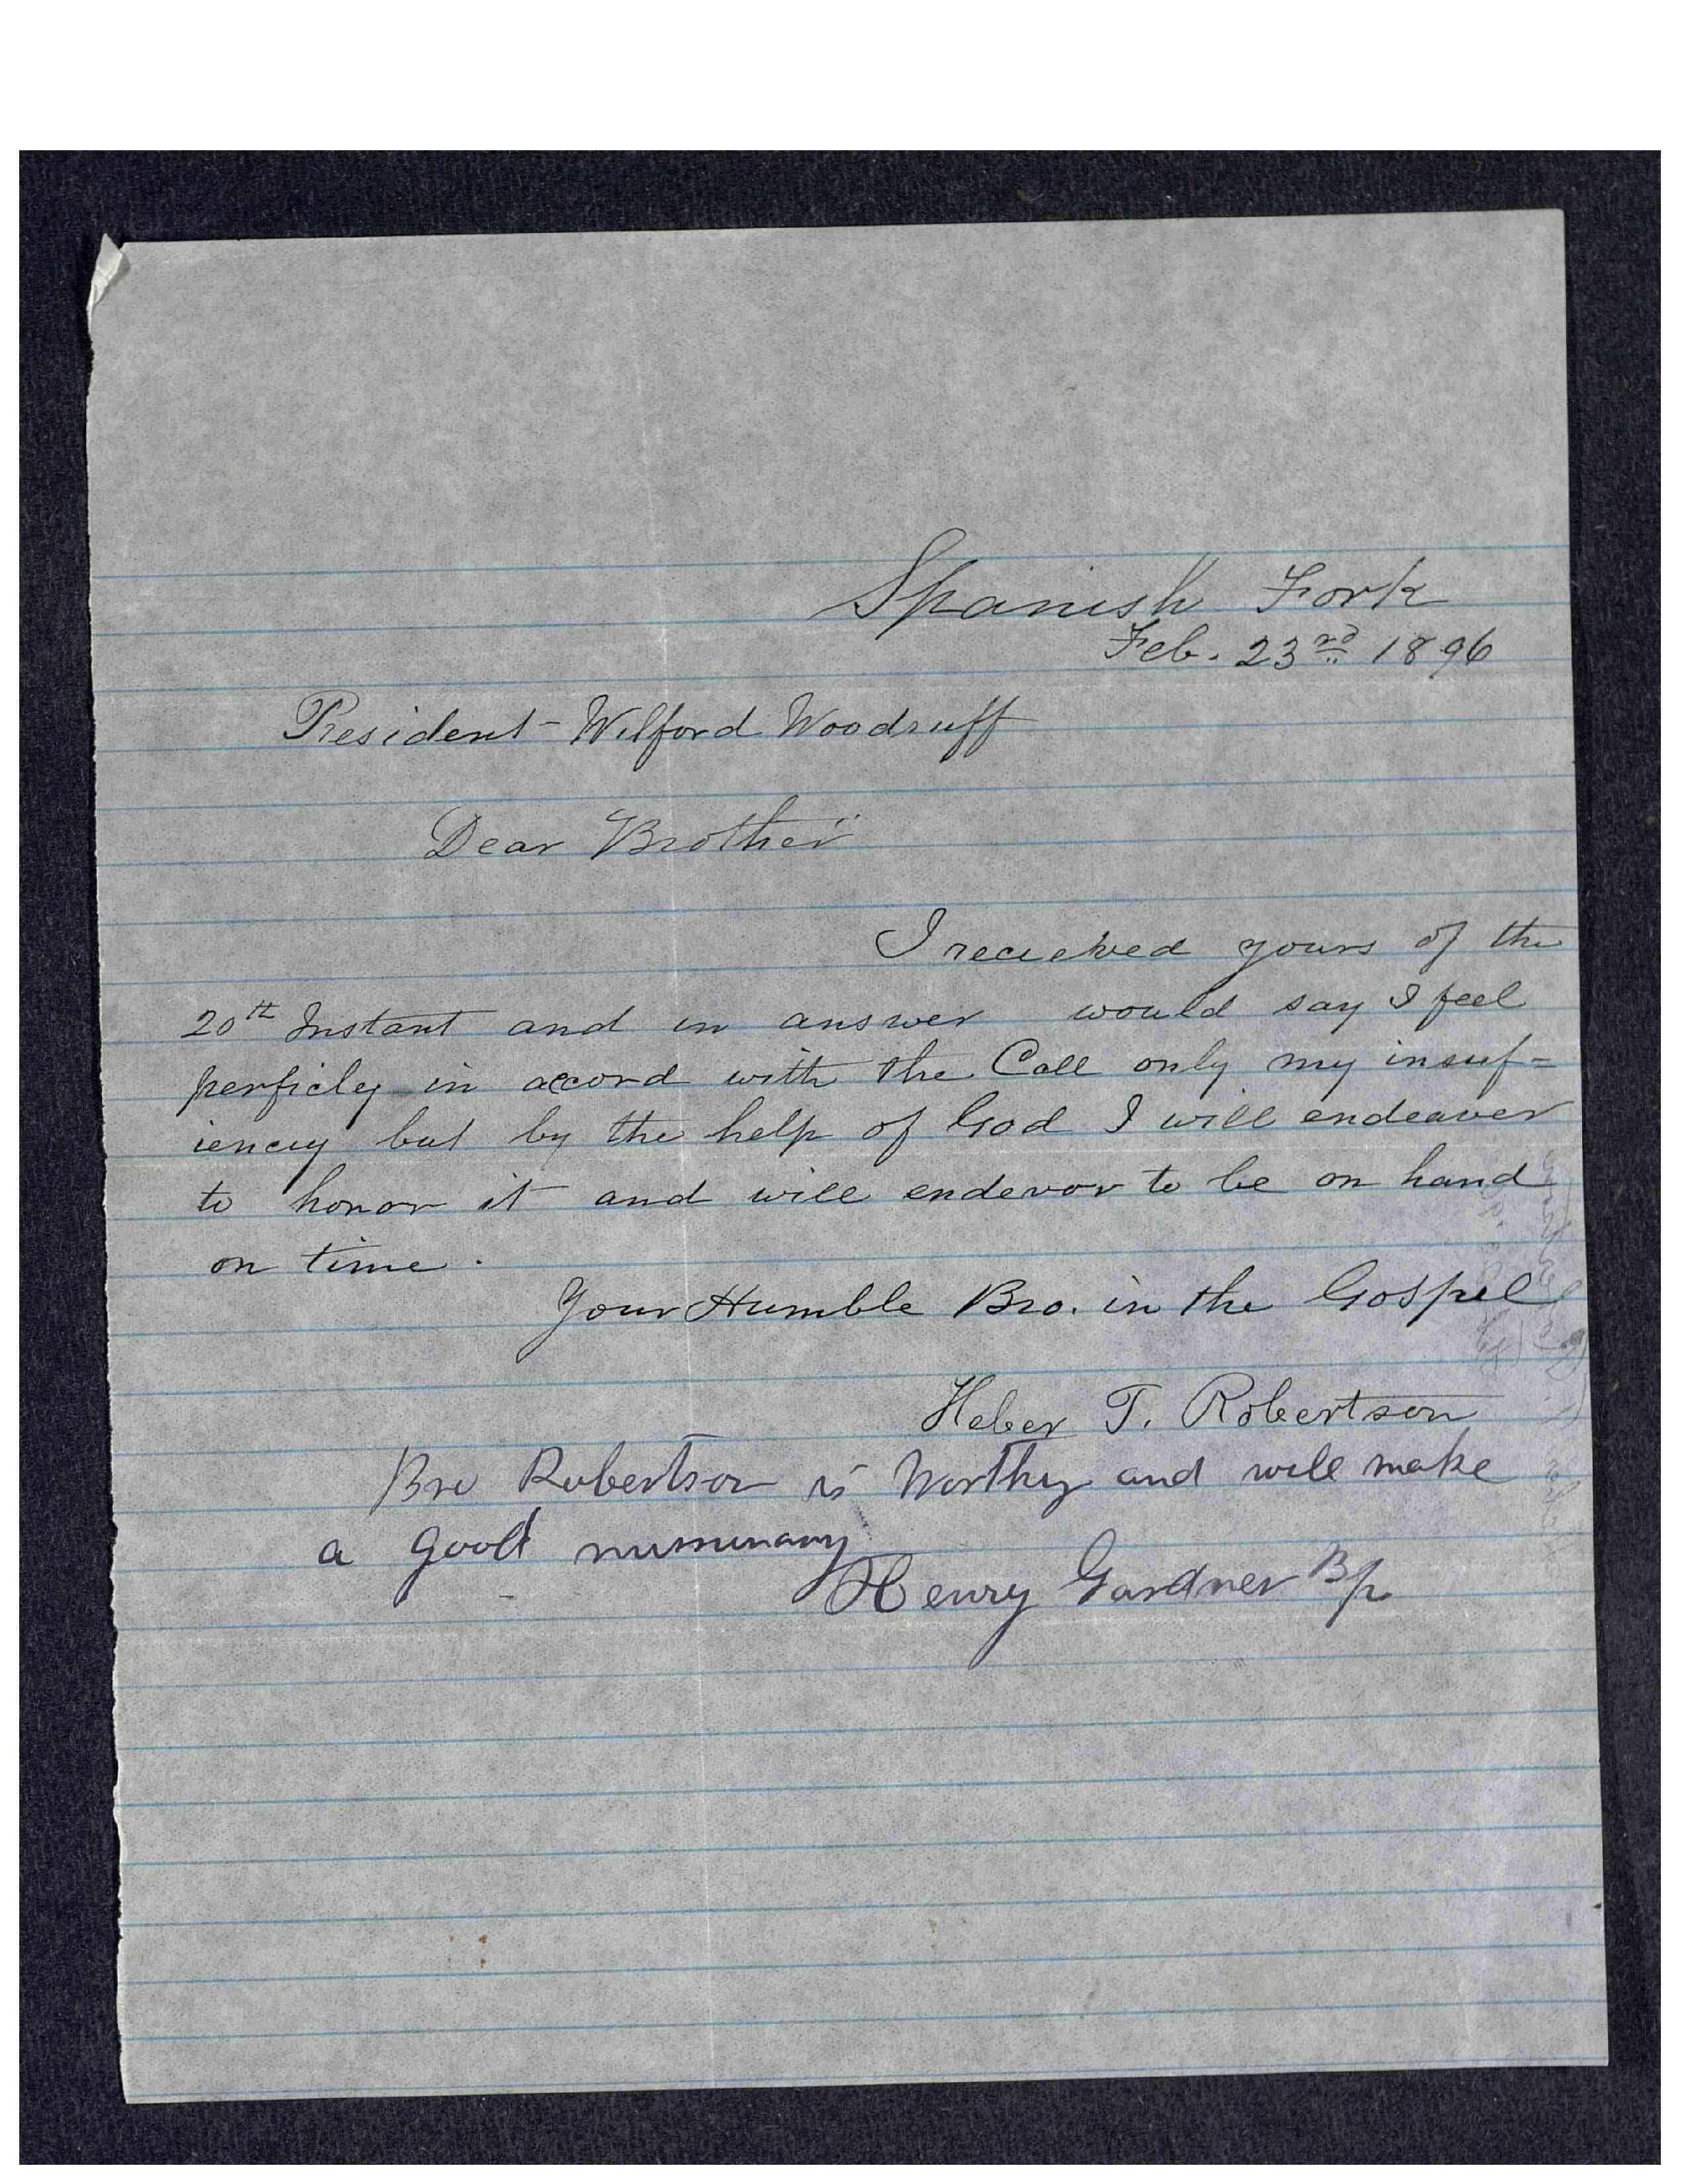 Spanish Fork
Feb. 23rd 1896
President Wilford Woodruff
Dear Brother
I recieved yours of the
20th Instant and in answer would say I feel
perficly in accord with the Call only my insuf=
iency but by the help of God I will endeaver
to honor it and will endevor to be on hand
on time.
Your Humble Bro. in the Gospel
Heber T. Robertson
Bro Robertson is Worthy and will make
a good missionary
Henry Gardner Bp